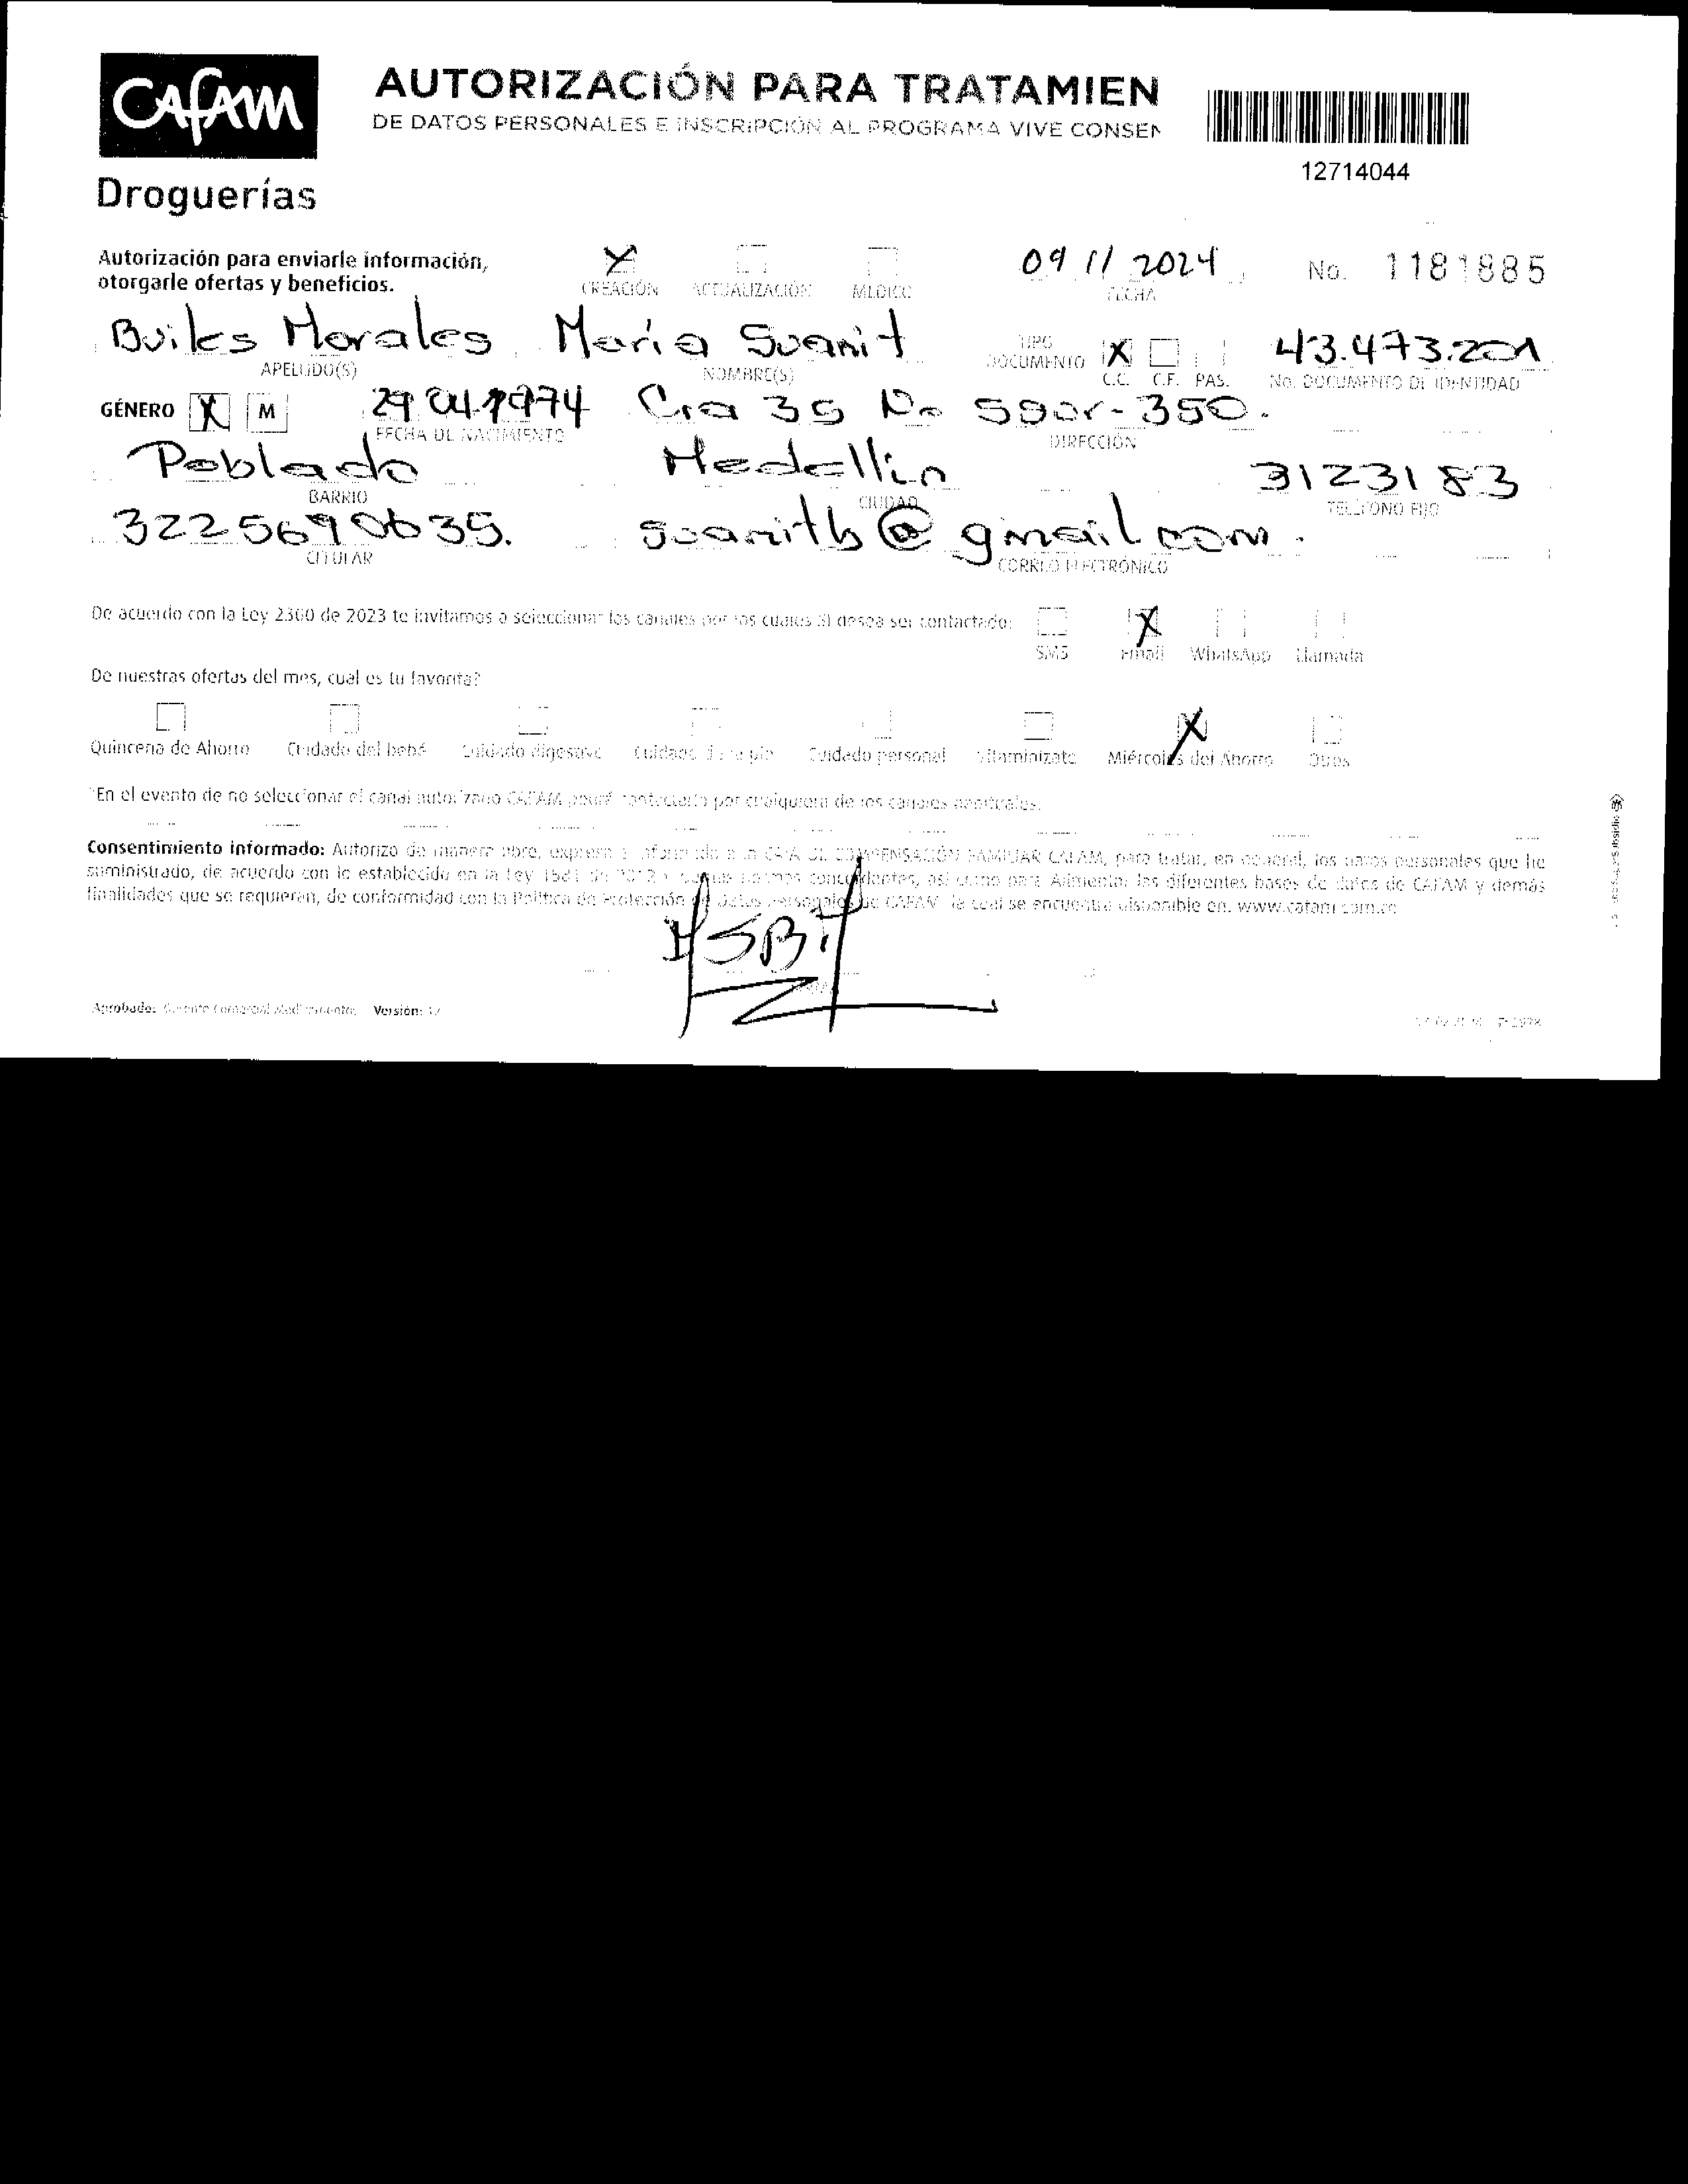 CAFAM
Droguerías
AUTORIZACIÓN PARA TRATAMIEN
DE DATOS PERSONALES E INSCRIPCIÓN AL PROGRAMA VIVE CONSEN
12714044
Autorización para enviarle información,
otorgarle ofertas y beneficios.
X CREACIÓN ACTUALIZACIÓN MÉDICO
09 11 2024
FECHA
No. 1181885
Builes Morales María Suanit
APELLIDO(S) NOMBRE(S)
TIPO DOCUMENTO X C.C. C.E. PAS.
43.473.201
No. DOCUMENTO DE IDENTIDAD
GÉNERO X M
29 04 1974 Cra 35 No
FECHA DE NACIMIENTO DIRECCIÓN
Poblado Medellin 3123183
BARRIO CIUDAD TELÉFONO FIJO
3225690635. suanitb@gmail.com.
CELULAR CORREO ELECTRÓNICO
De acuerdo con la Ley 2300 de 2023 te invitamos a seleccionar los canales por los cuales SI desea ser contactado:
SMS X Email WhatsApp Llamada
De nuestras ofertas del mes, cual es tu favorita?
Quincena de Ahorro Cuidado del bebé Cuidado digestivo Cuidado de la piel Cuidado personal Vitaminízate X Miércoles del Ahorro Otros
*En el evento de no seleccionar el canal autorizado CAFAM podrá contactarlo por cualquiera de los canales habituales.
Consentimiento informado: Autorizo de manera libre, expresa e informada a la CAJA DE COMPENSACIÓN FAMILIAR CAFAM, para tratar, en general, los datos personales que he
suministrado, de acuerdo con lo establecido en la Ley 1581 de 2012 y demás normas concordantes, así como para Alimentar las diferentes bases de datos de CAFAM y demás
finalidades que se requieran, de conformidad con la Política de Protección de Datos Personales de CAFAM la cual se encuentra disponible en: www.cafam.com.co
FIRMA
Aprobado: Versión: 12